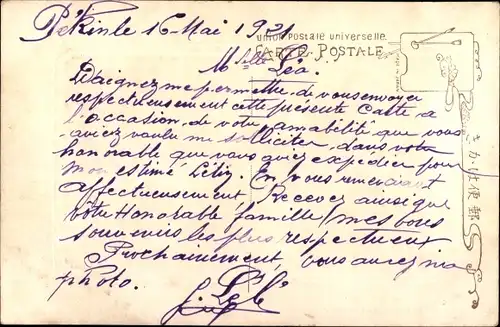 Pékin le 16 Mai 1921
Union postale universelle.
CARTE POSTALE
Mlle Léa.
Daignez me permettre de vous envoyer
respectueusement cette présente Carte a
l'occasion de votre amabilité que vous
aviez voulu me solliciter dans votre
honorable que vous aviez expédier pour
mon estimé
En vous remerciant
affectueusement Recevez ainsi que
votre Honorable famille, mes bons
souvenirs les plus respectueux
Prochainement, vous aurez ma
photo.
きかは便郵